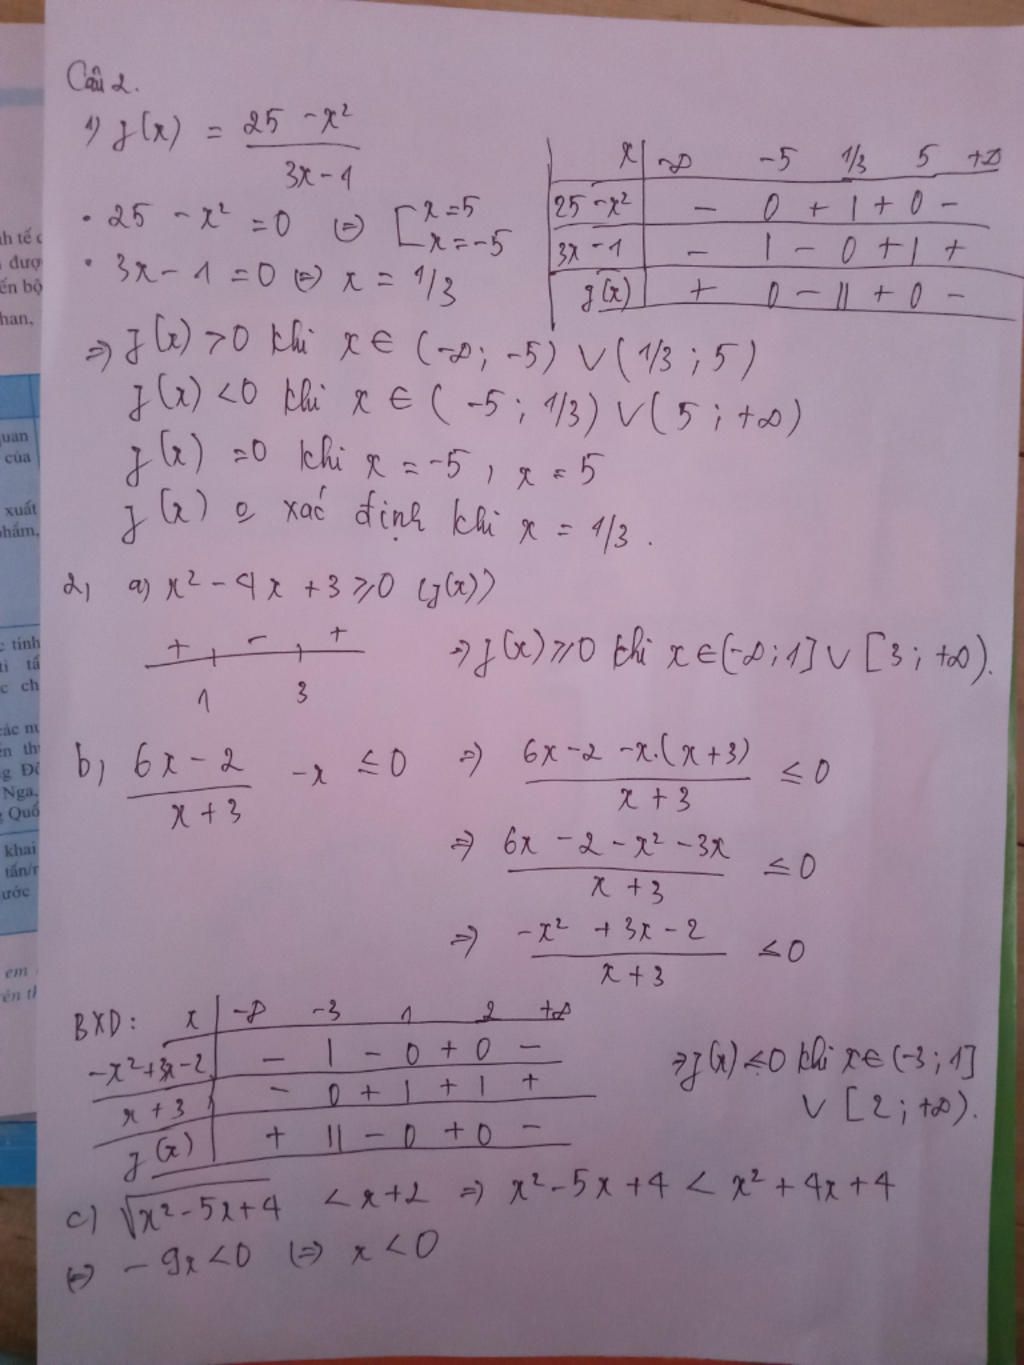 Câu 2.
1) f(x) = 25 - x² / 3x - 1
• 25 - x² = 0 ⇔ [ x = 5
x = -5
• 3x - 1 = 0 ⇔ x = 1/3
x | -∞ -5 1/3 5 +∞
25 - x² | - 0 + | + 0 -
3x - 1 | - | - 0 + | +
f(x) | + 0 - || + 0 -
⇒ f(x) > 0 khi x ∈ (-∞; -5) ∨ (1/3; 5)
f(x) < 0 khi x ∈ (-5; 1/3) ∨ (5; +∞)
f(x) = 0 khi x = -5, x = 5
f(x) xác định khi x = 1/3.
2, a) x² - 4x + 3 ≥ 0 (f(x))
+ - +
1 3
⇒ f(x) ≥ 0 khi x ∈ (-∞; 1] ∨ [3; +∞).
b, 6x - 2 / x + 3 - x ≤ 0 ⇒ 6x - 2 - x.(x + 3) / x + 3 ≤ 0
⇒ 6x - 2 - x² - 3x / x + 3 ≤ 0
⇒ -x² + 3x - 2 / x + 3 ≤ 0
BXD: x | -∞ -3 1 2 +∞
-x² + 3x - 2 | - | - 0 + 0 -
x + 3 | - 0 + | + | +
f(x) | + || - 0 + 0 -
⇒ f(x) ≤ 0 khi x ∈ (-3; 1]
∨ [2; +∞).
c) √x² - 5x + 4 < x + 2 ⇒ x² - 5x + 4 < x² + 4x + 4
⇔ - 9x < 0 ⇔ x < 0